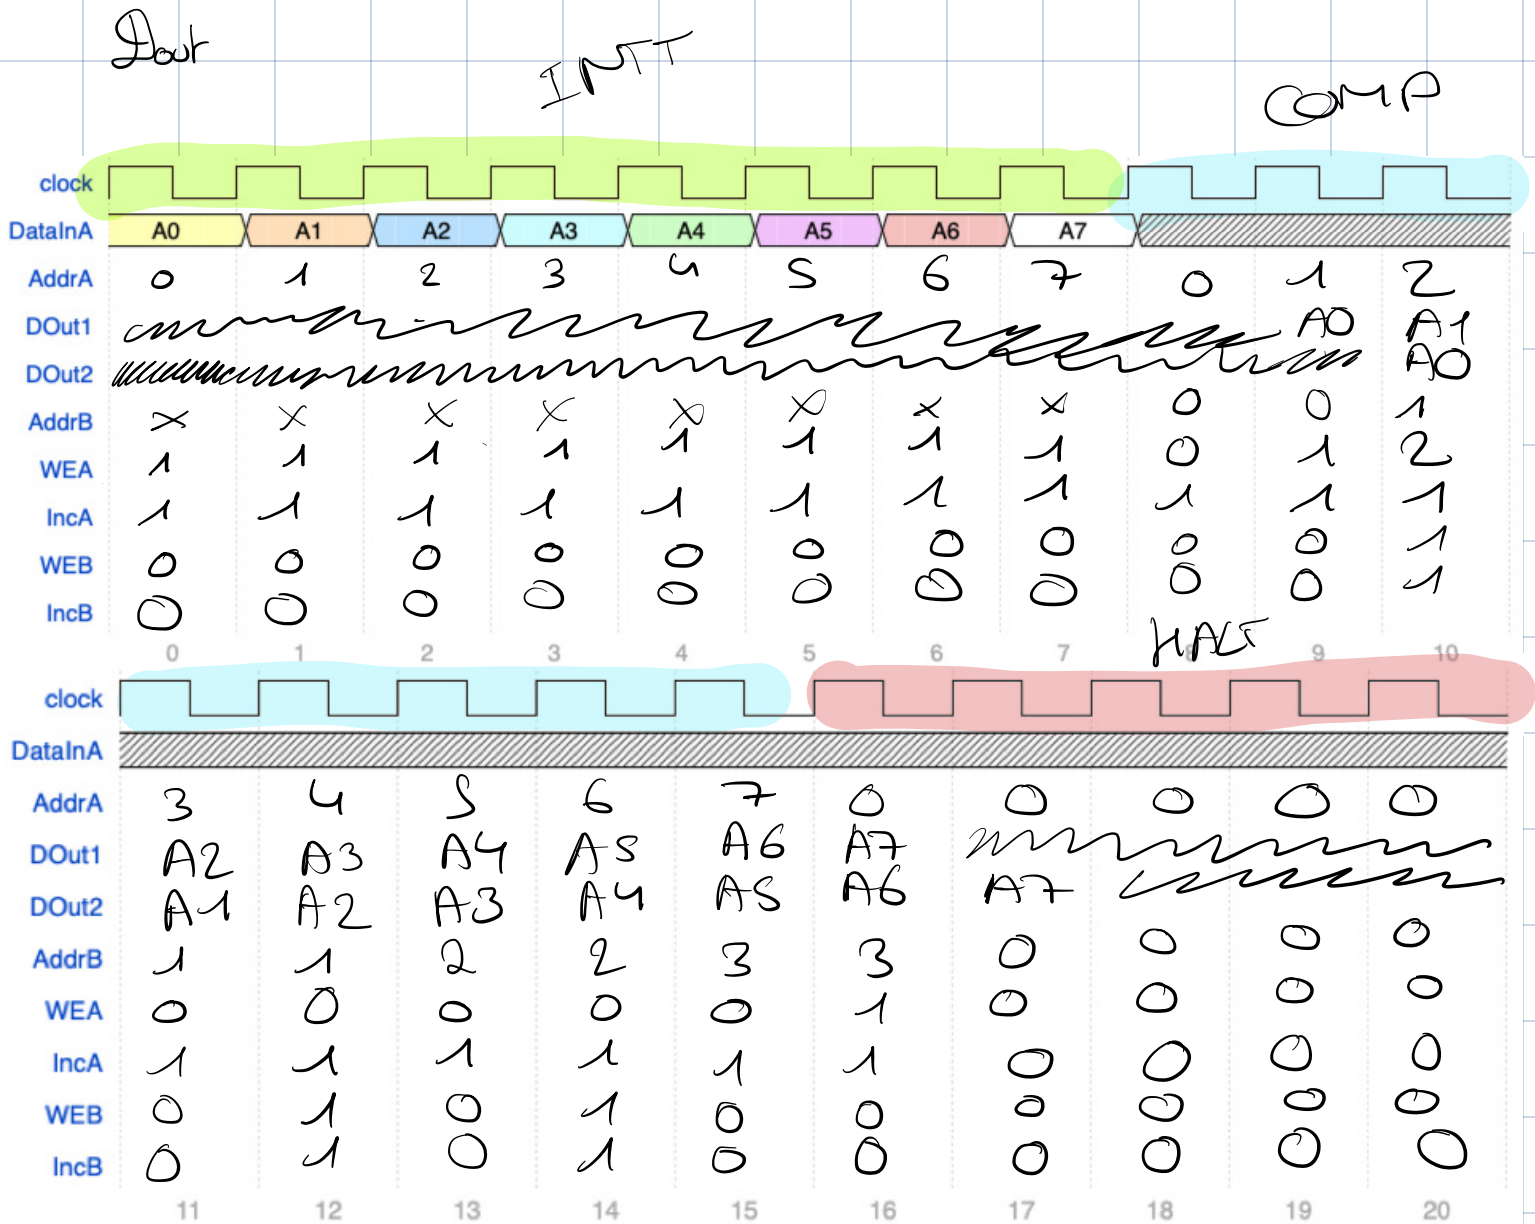 Dout
INTT
COMP
clock
DataInA A0 A1 A2 A3 A4 A5 A6 A7
AddrA 0 1 2 3 4 5 6 7 0 1 2
DOut1 A0 A1
DOut2 A0
AddrB x x x x x x x x 0 0 1
WEA 1 1 1 1 1 1 1 1 0 1 2
IncA 1 1 1 1 1 1 1 1 1 1 1
WEB 0 0 0 0 0 0 0 0 0 0 1
IncB 0 0 0 0 0 0 0 0 0 0 1
HALT
0 1 2 3 4 5 6 7 8 9 10
clock
DataInA
AddrA 3 4 5 6 7 0 0 0 0 0
DOut1 A2 A3 A4 A5 A6 A7
DOut2 A1 A2 A3 A4 A5 A6 A7
AddrB 1 1 2 2 3 3 0 0 0 0
WEA 0 0 0 0 0 1 0 0 0 0
IncA 1 1 1 1 1 1 0 0 0 0
WEB 0 1 0 1 0 0 0 0 0 0
IncB 0 1 0 1 0 0 0 0 0 0
11 12 13 14 15 16 17 18 19 20